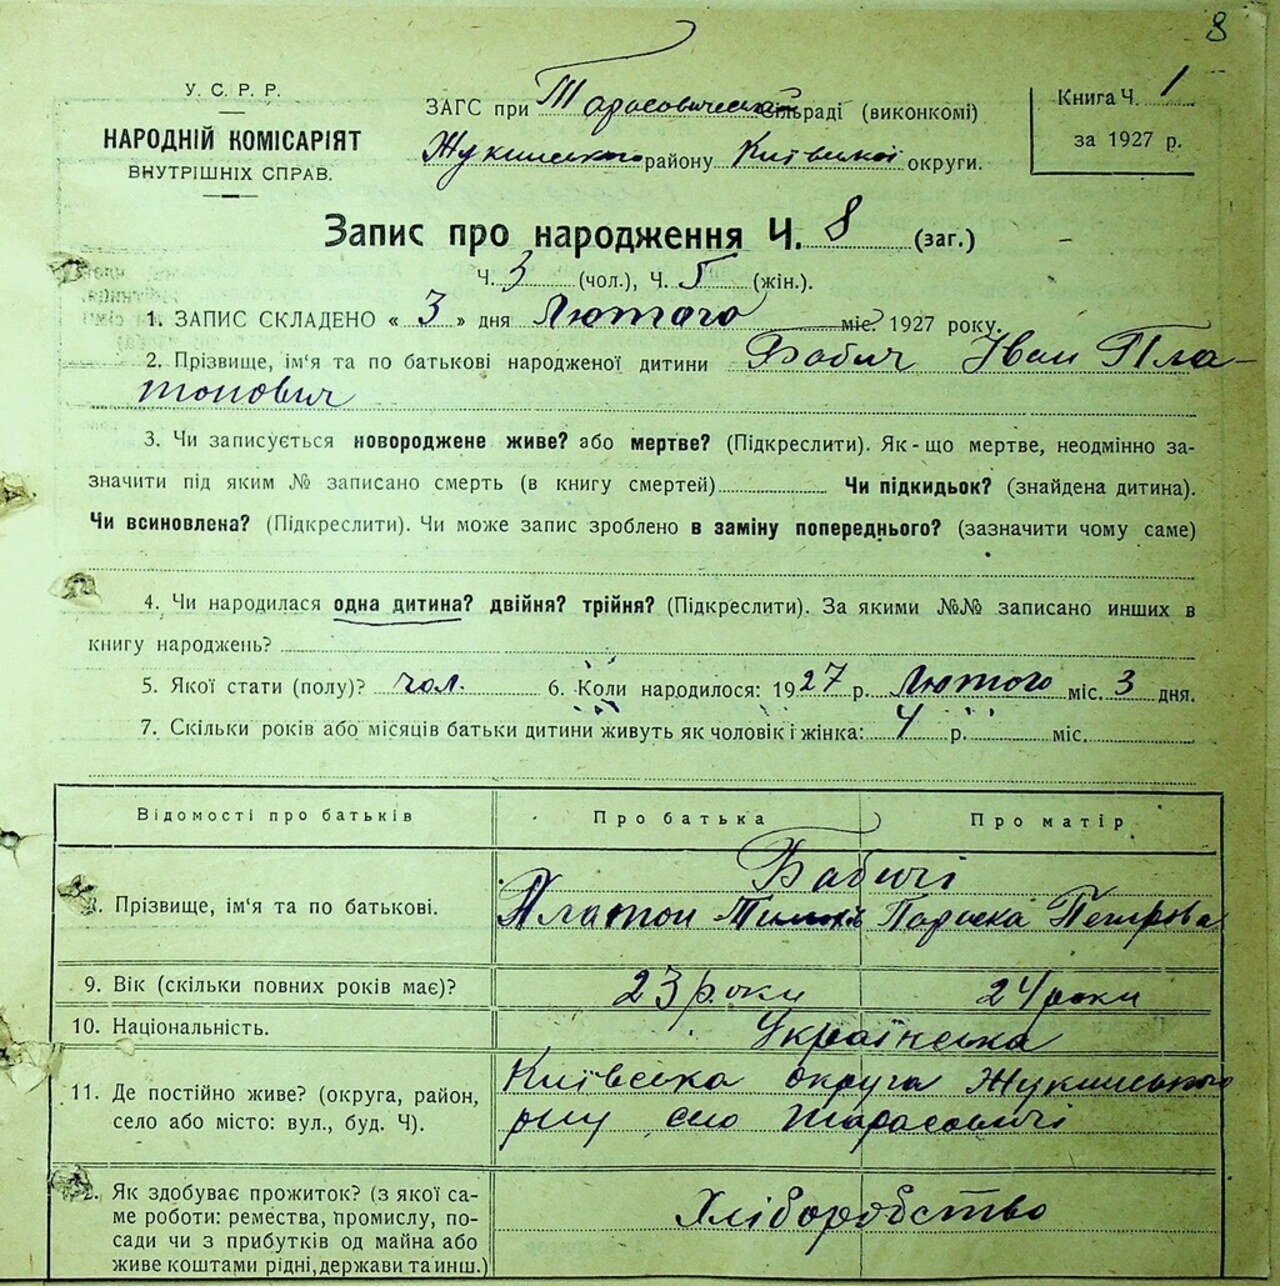 8
У. С. Р. Р.
НАРОДНІЙ КОМІСАРІЯТ
ВНУТРІШНІХ СПРАВ.
ЗАГС при Тарасовическ сільраді (виконкомі)
Жукинського району Київської округи.
Книга Ч. 1
за 1927 р.
Запис про народження Ч. 8 (заг.)
Ч. 3 (чол.), Ч. 5 (жін.).
1. ЗАПИС СКЛАДЕНО « 3 » дня Лютого міс. 1927 року.
2. Прізвище, ім'я та по батькові народженої дитини Бабич Іван Пла-
тонович
3. Чи записується новороджене живе? або мертве? (Підкреслити). Як-що мертве, неодмінно за-
значити під яким № записано смерть (в книгу смертей) Чи підкидьок? (знайдена дитина).
Чи всиновлена? (Підкреслити). Чи може запис зроблено в заміну попереднього? (зазначити чому саме)
4. Чи народилася одна дитина? двійня? трійня? (Підкреслити). За якими №№ записано инших в
книгу народжень?
5. Якої стати (полу)? чол. 6. Коли народилося: 1927 р. Лютого міс. 3 дня.
7. Скільки років або місяців батьки дитини живуть як чоловік і жінка: 4 р. міс.
Відомості про батьків Про батька Про матір
Бабичі
8. Прізвище, ім'я та по батькові. Платон Тимох Параска Петрова
9. Вік (скільки повних років має)? 23 роки 24 роки
10. Національність. Українська
11. Де постійно живе? (округа, район,
село або місто: вул., буд. Ч).
Київська округа Жукинського
р-ну село Тарасовичі
12. Як здобуває прожиток? (з якої са-
ме роботи: ремества, промислу, по-
сади чи з прибутків од майна або
живе коштами рідні, держави та инш.)
Хліборобство